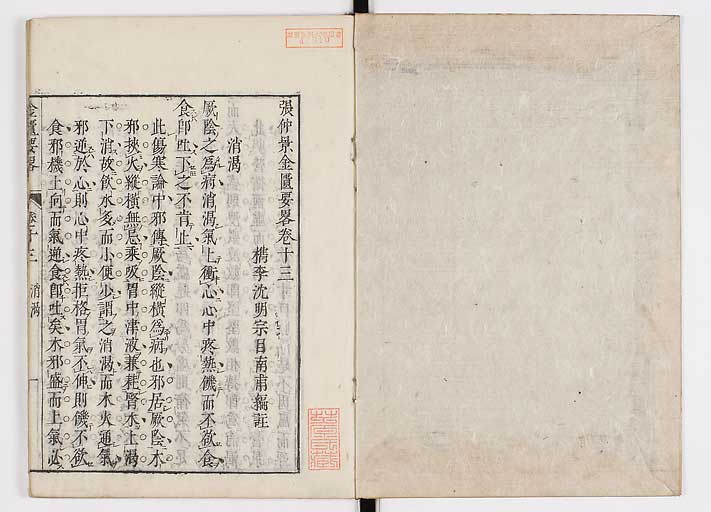 張仲景金匱要畧卷十三
檇李沈明宗目南甫編註
消渴
厥陰之為病消渴氣上衝心心中疼熱饑而不欲食
食即吐下之不肯止
此傷寒論中邪傳厥陰縱橫為病也邪居厥陰木
邪挾火縱橫無忌乘吸胃中津液兼耗腎水上渴
下消故飲水多而小便少謂之消渴而木火通氣
邪逆於心則心中疼熱拒格胃氣不伸則饑不欲
食邪機上向而氣逆食即吐矣木邪盛而上氣必
金匱要畧 卷十三 消渴 一